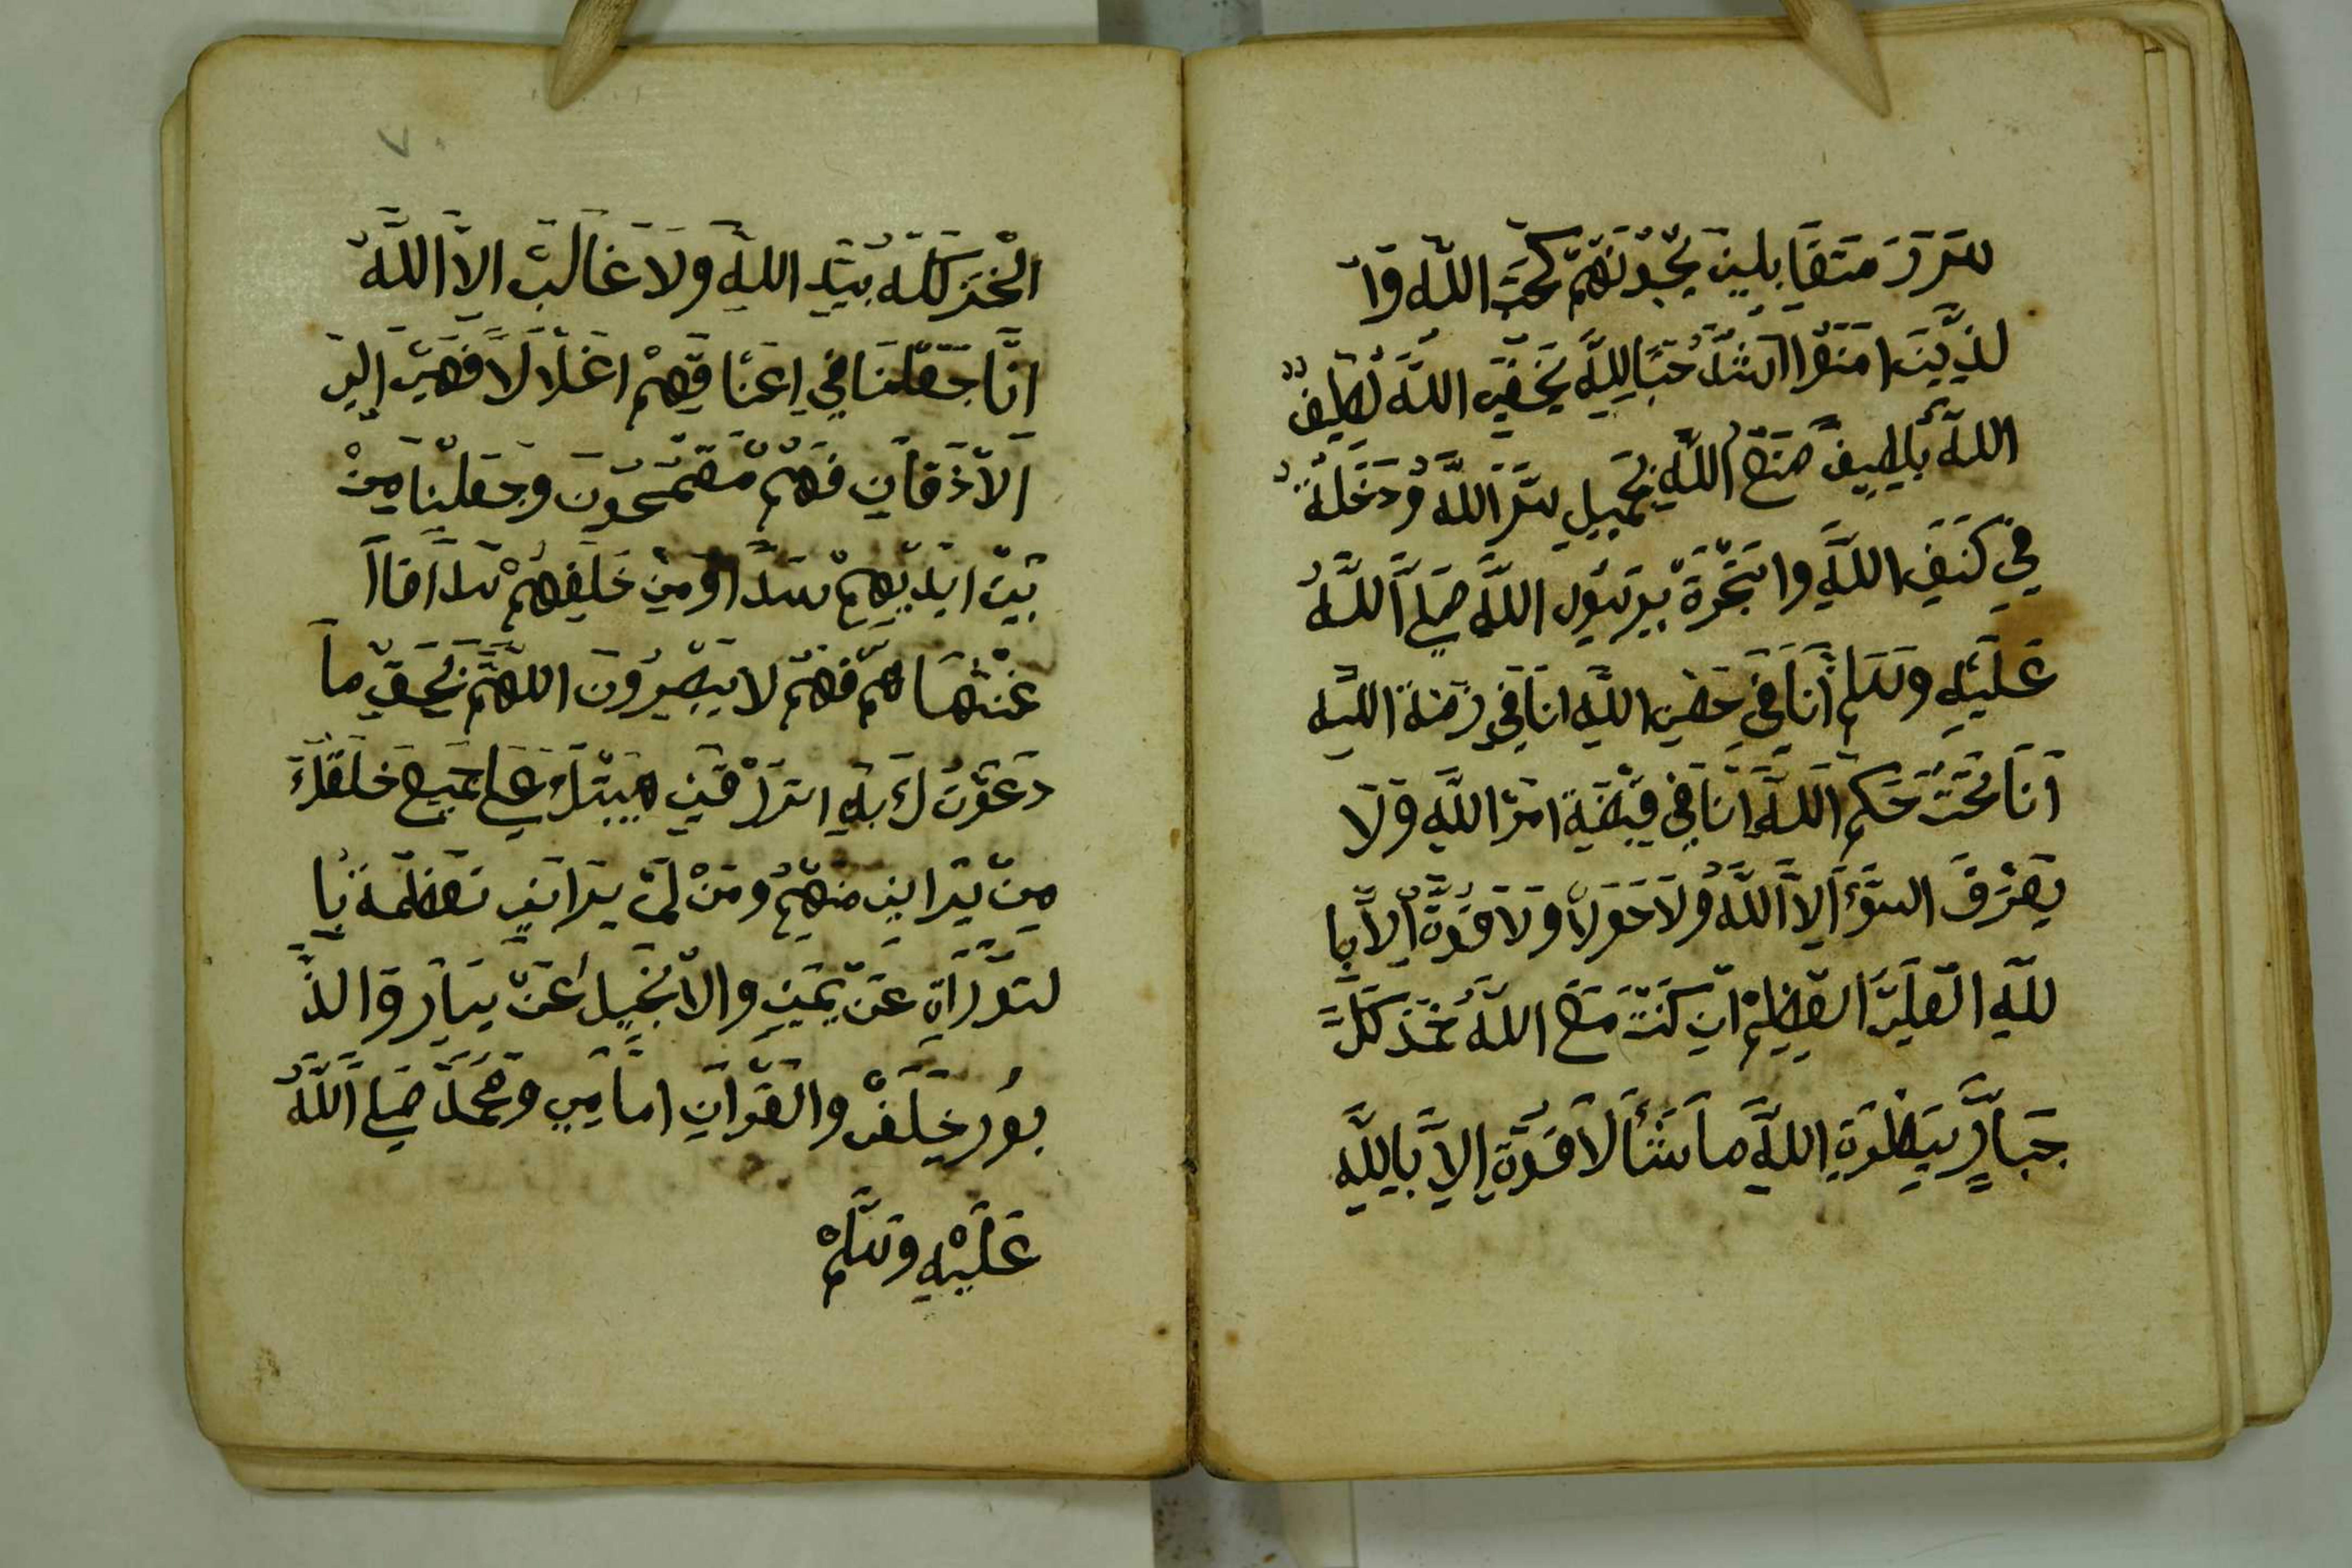 سرر متقابلين يحبونهم كحب الله وا
لذين امنوا اشد حبا لله بخفي الله لطيف
الله بلطيف صنع الله بجميل ستر الله ودخلة
في كنف الله واستجرة برسول الله صلي الله
عليه وسلم انا في حضن الله انا في رضة الله
انا تحت حكم الله انا في قبضة امر الله ولا
يصرف السوء الا الله ولا حولا ولا قوة الا با
لله العلي العظيم ان كنت مع الله خذ كل
جبار بسطوة الله ما شأ لا قوة الا بالله
الخير كله بيد الله ولا غالب الا الله
انا جعلنا في اعناقهم اغلالا فهي الي
الاذقان فهم مقمحون وجعلنا من
بين ايديهم سدا ومن خلفهم سدا فاا
غشيناهم فهم لا يبصرون اللهم بحق ما
دعوت ك به ارزقني هيبتك علي جميع خلقك
من يراني منهم ومن لم يراني نعظمة با
لتوراة عن يميني والانجيل عن يسار والذ
بور خلف والقران امامي ومحمد صلي الله
عليه وسلم